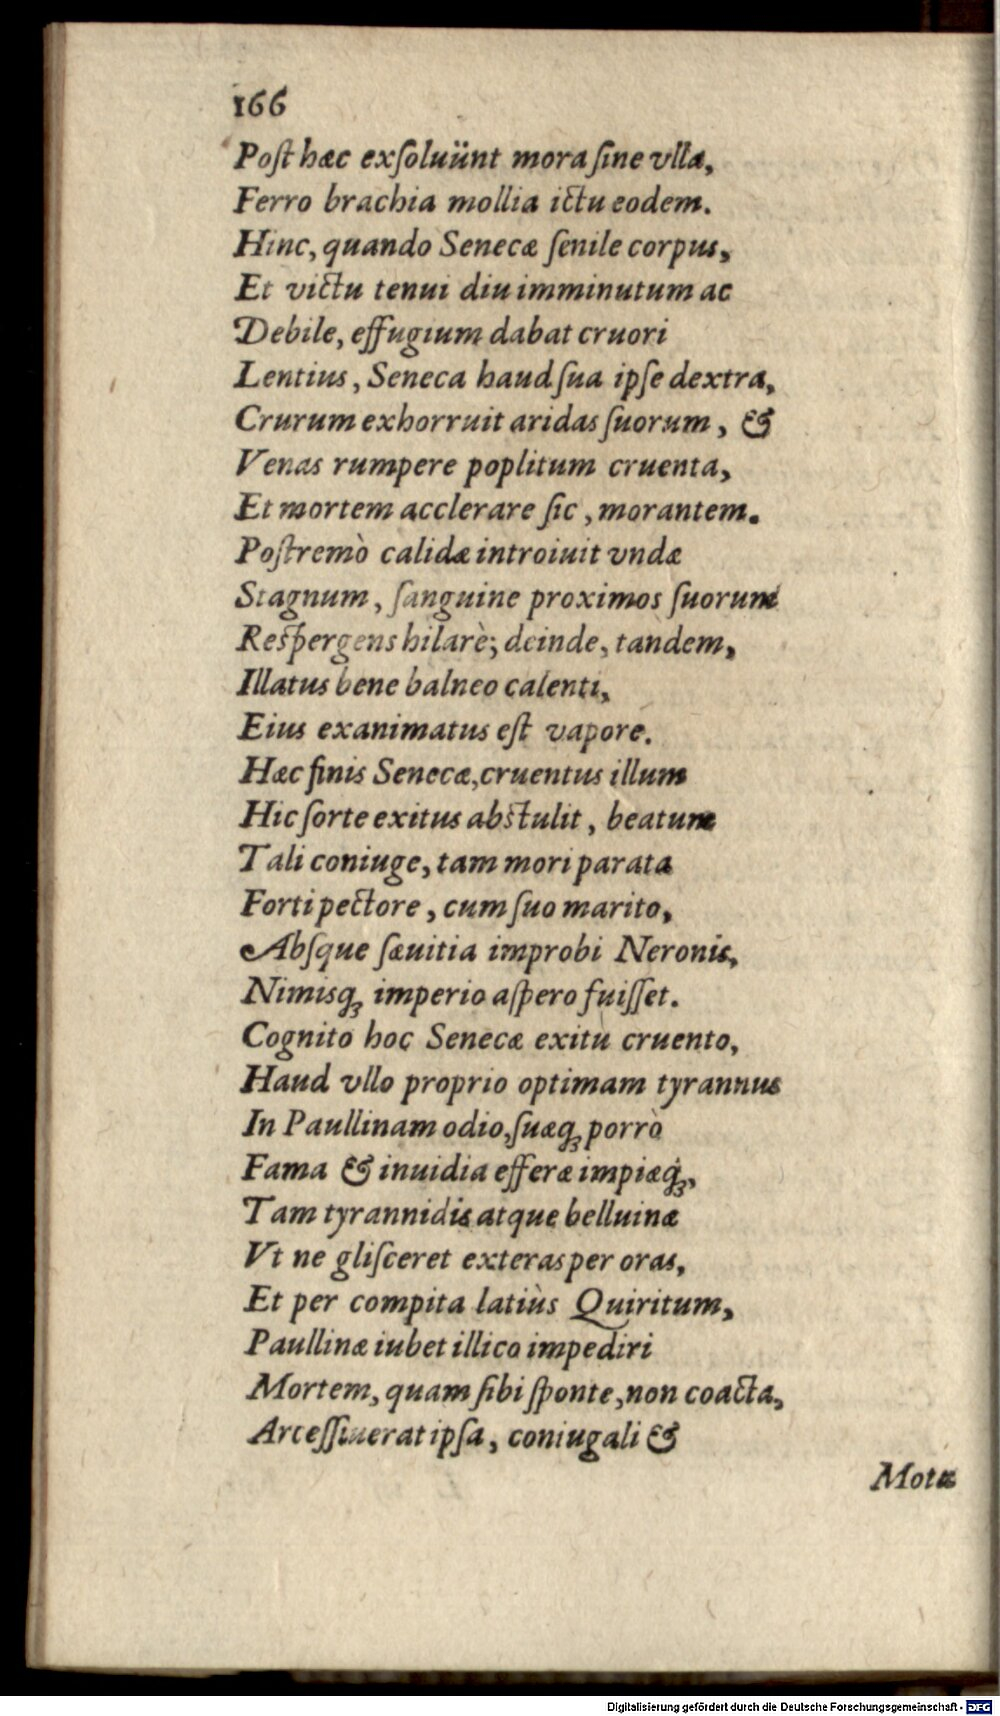 166
Poſt hæc exſoluünt mora ſine vlla,
Ferro brachia mollia ictu eodem.
Hinc, quando Senecæ ſenile corpus,
Et victu tenui diu imminutum ac
Debile, effugium dabat cruori
Lentius, Seneca haud ſua ipſe dextra,
Crurum exhorruit aridas ſuorum, &
Venas rumpere poplitum cruenta,
Et mortem acclerare ſic, morantem.
Poſtremò calidæ introiuit vndæ
Stagnum, ſanguine proximos ſuorum
Reſpergens hilarè; deinde, tandem,
Illatus bene balneo calenti,
Eius exanimatus eſt vapore.
Hæc finis Senecæ, cruentus illum
Hic ſorte exitus abſtulit, beatum
Tali coniuge, tam mori parata
Forti pectore, cum ſuo marito,
Abſque ſæuitia improbi Neronis,
Nimisq; imperio aſpero fuiſſet.
Cognito hoc Senecæ exitu cruento,
Haud vllo proprio optimam tyrannus
In Paullinam odio, ſuæq; porrò
Fama & inuidia efferæ impiæq́;,
Tam tyrannidis atque belluinæ
Vt ne gliſceret exteras per oras,
Et per compita latiùs Quiritum,
Paullinæ iubet illico impediri
Mortem, quam ſibi ſponte, non coacta,
Arceſſiuerat ipſa, coniugali &
Motæ
Digitalisierung gefördert durch die Deutsche Forschungsgemeinschaft - DFG